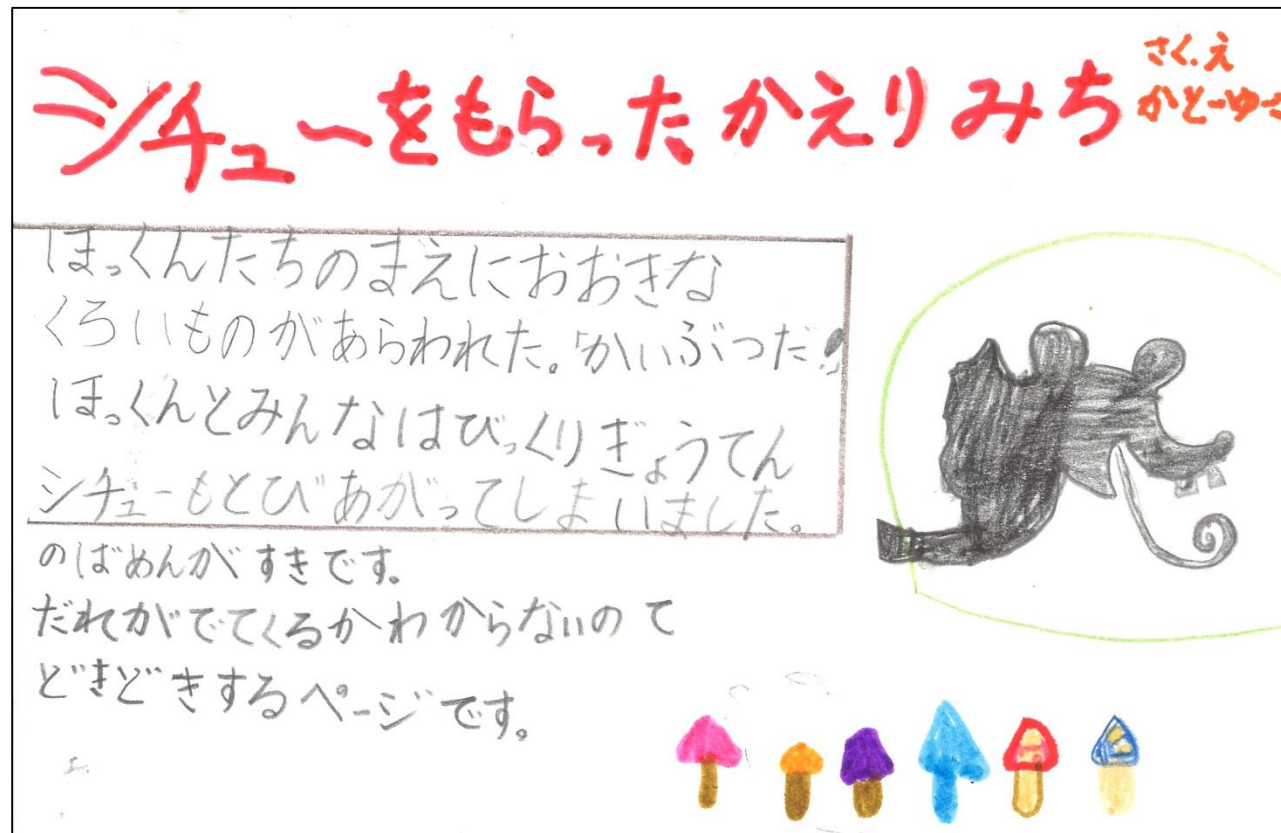 シチューをもらったかえりみち
さく.え
かとーゆー
ほっくんたちのまえにおおきな
くろいものがあらわれた。「かいぶつだ!」
ほっくんとみんなはびっくりぎょうてん
シチューもとびあがってしまいました。
のばめんがすきです。
だれがでてくるかわからないのて
どきどきするページです。